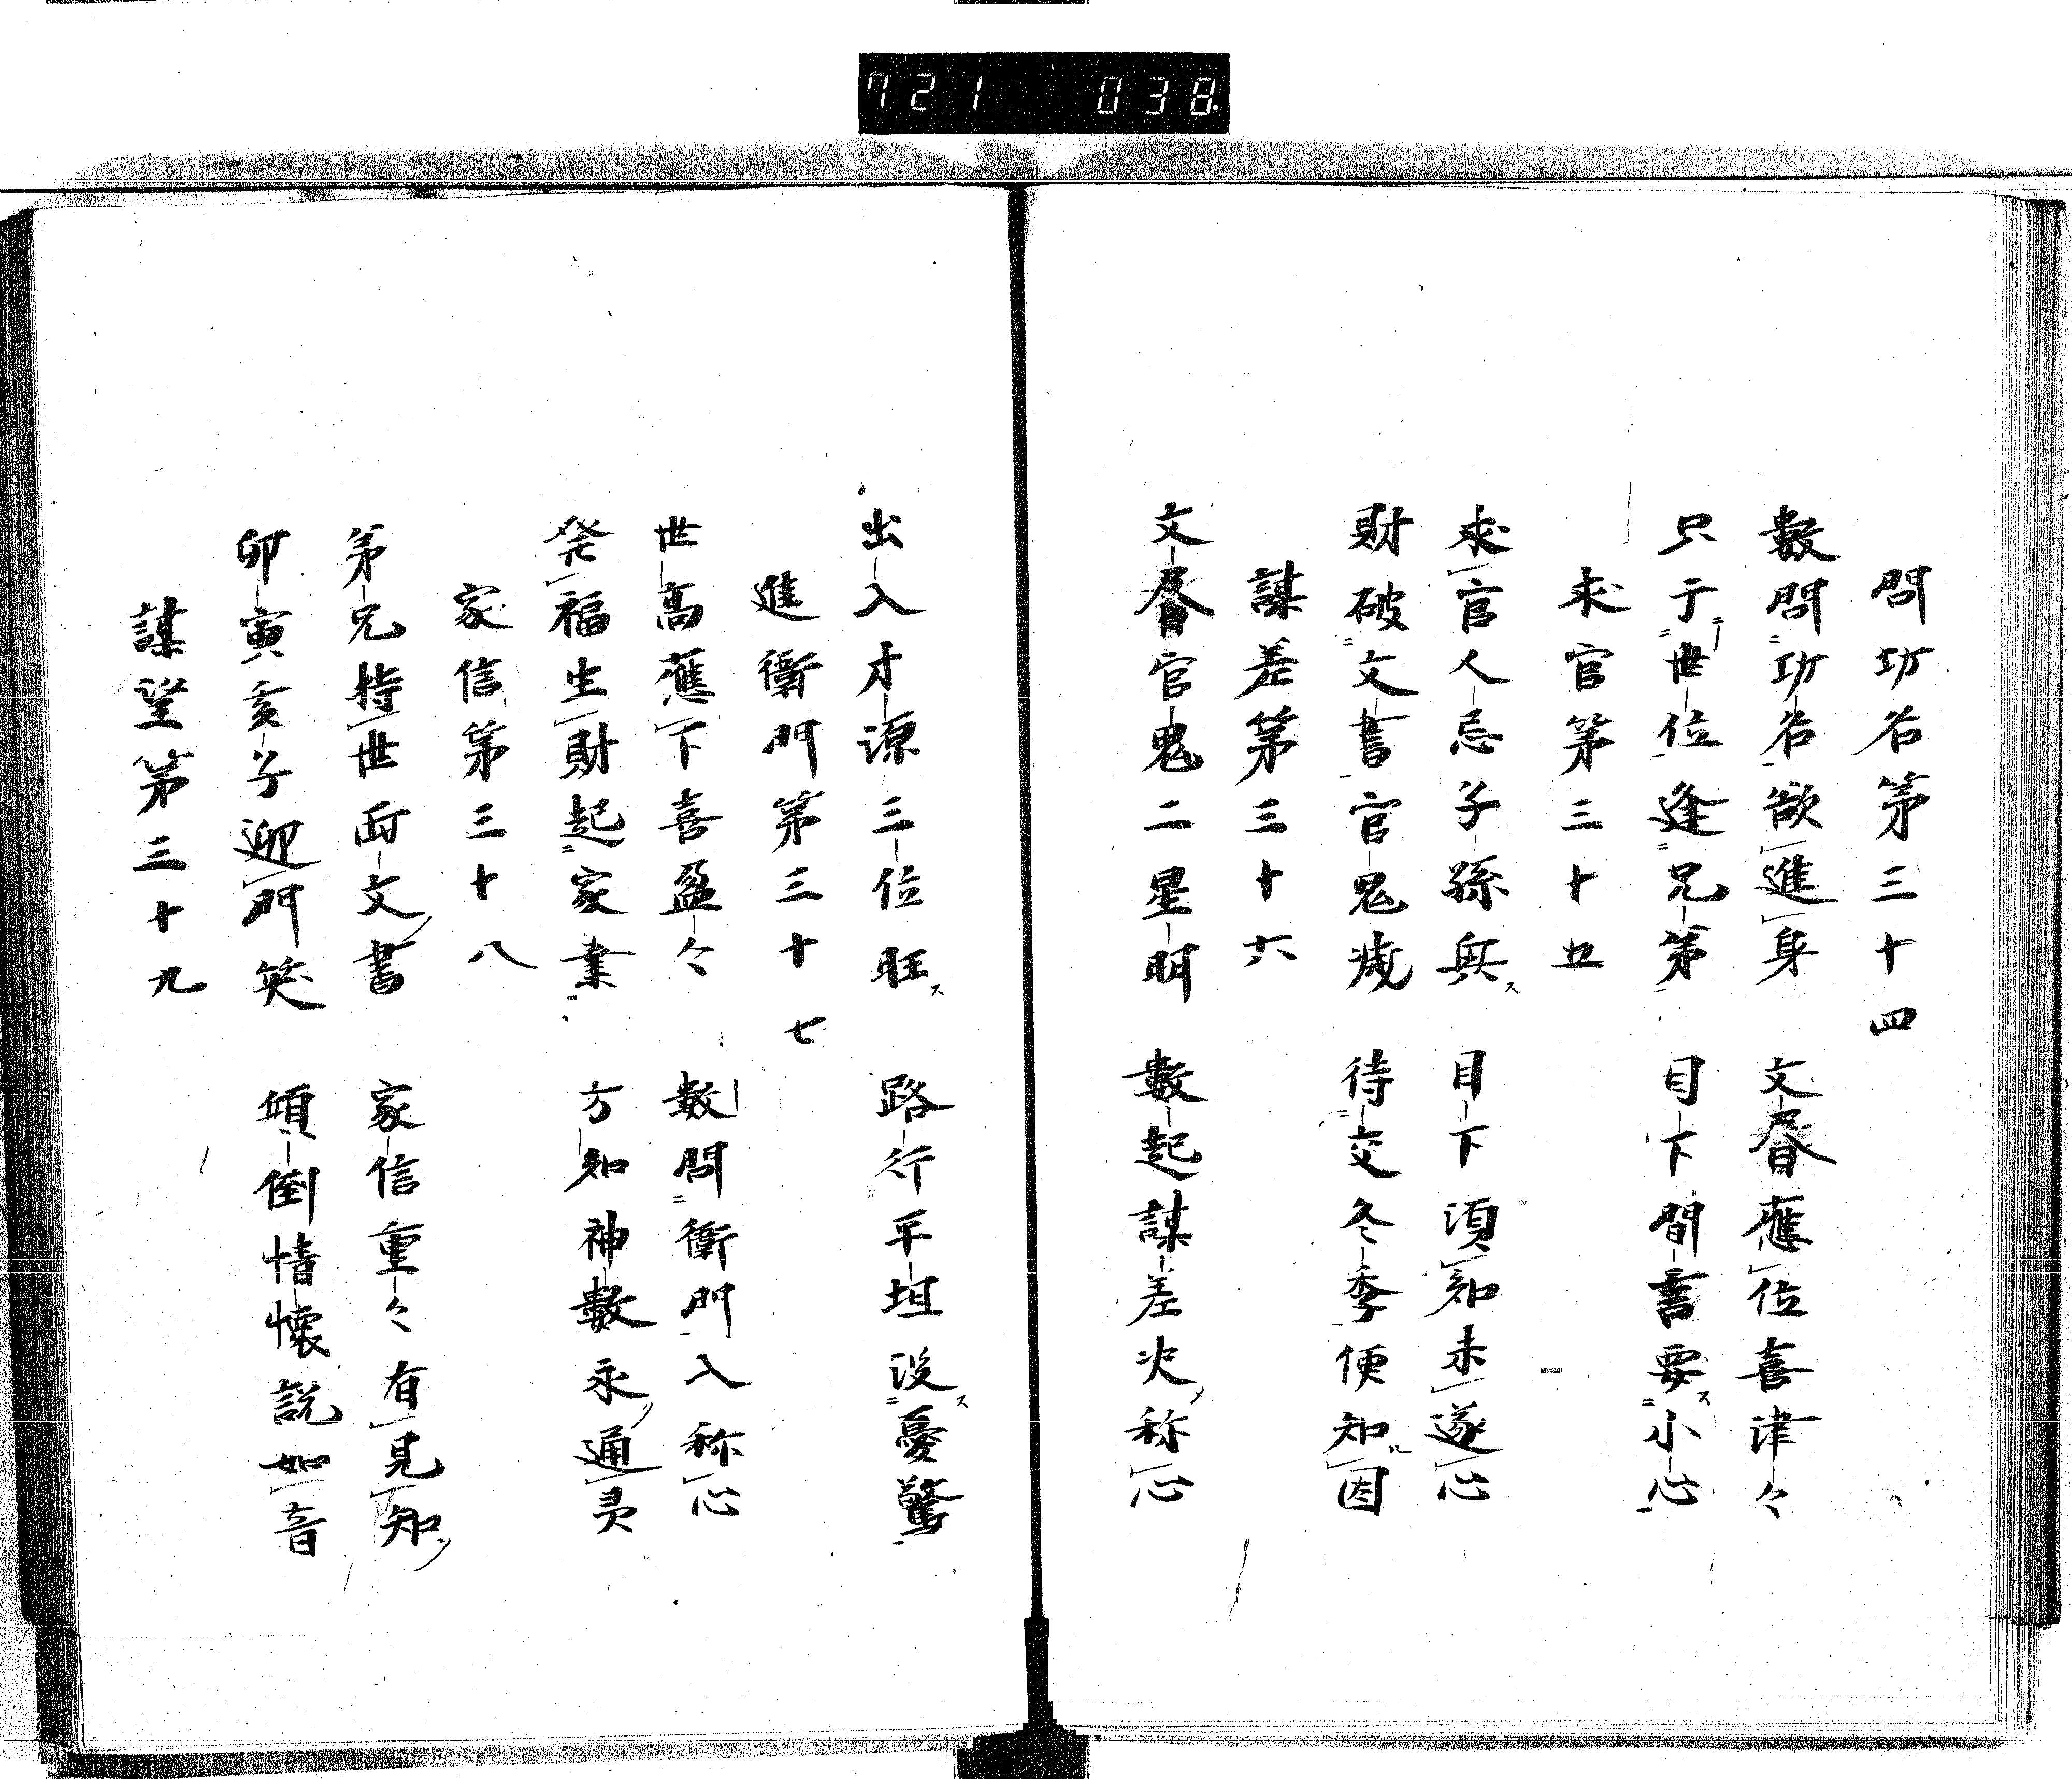 721 038
問功名第三十四
數問功名欲進身 文昏應位喜津々
只于世位逢兄第 目下間言要小心
求官第三十五
求官人忌子孫興 目下須知未遂心
財破文書官鬼滅 待交冬季便知因
謀差第三十六
文昏官鬼二星明 數起謀差決称心
出入才源三位旺 路行平坦没憂驚
進衙門第三十七
世高應下喜盈々 數問衙門入称心
発福生財起家業 方知神數永通灵
家信第三十八
弟兄持世面文書 家信重々有見知
卯寅亥子迎門笑 傾倒情懐説如音
謀望第三十九